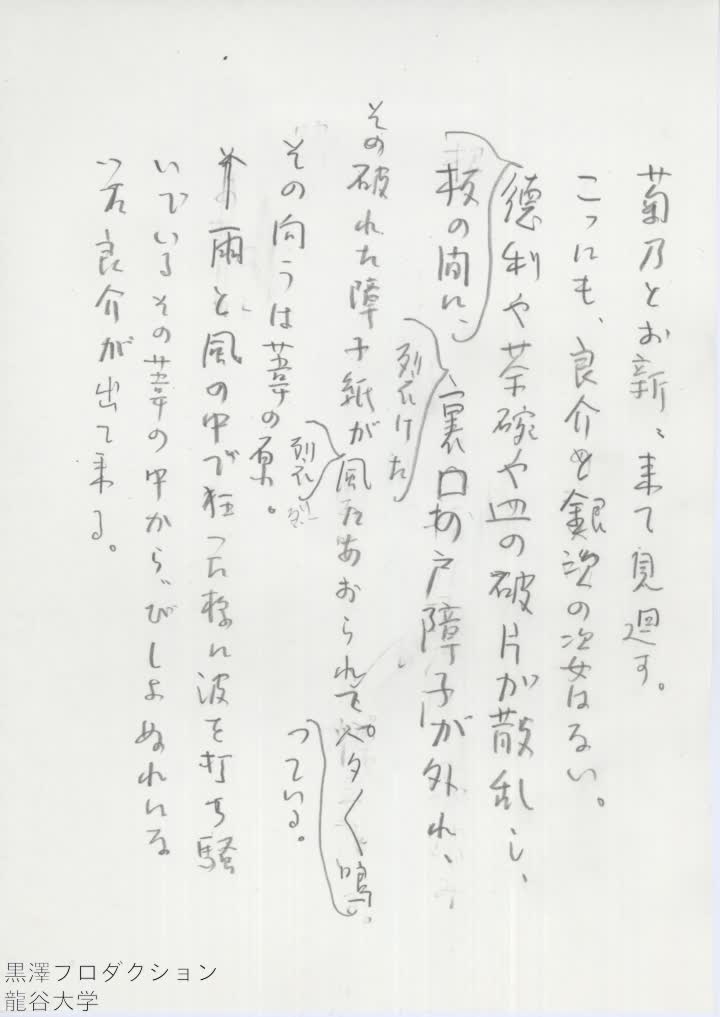 菊乃とお新、来て見廻す。
こゝにも、良介や銀次の姿はない。
徳利や茶碗や皿の破片が散乱し、
板の間に、裏口の戸障子が外れ、
裂けた
その破れた障子紙が風にあおられてパタ〱鳴
っている。
裂れ
その向うは葦の原。
雨と風の中で狂った様に波を打ち騒
いでいるその葦の中から、びしょぬれにな
った良介が出て来る。
黒澤プロダクション
龍谷大学